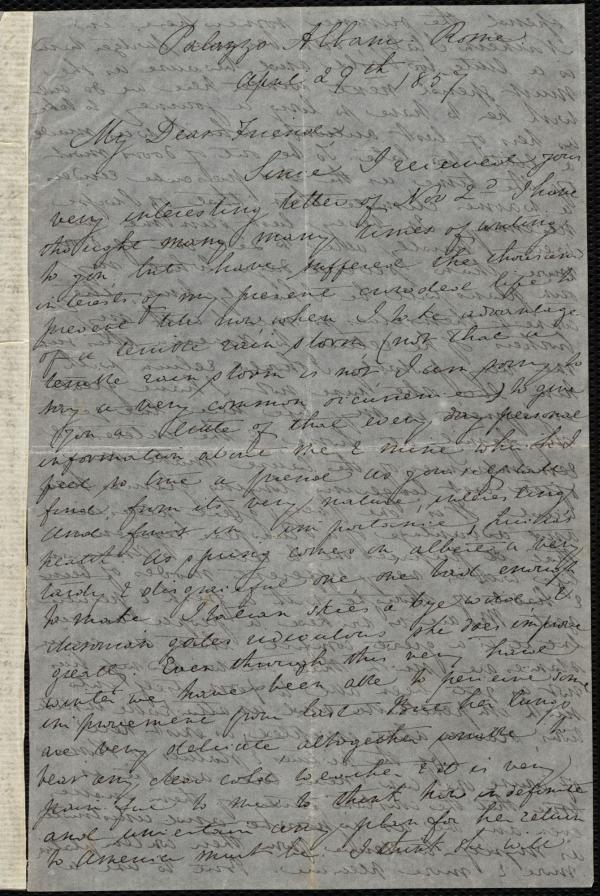 Palazzo Albani Rome
April 29th 1857
My Dear Friend
Since I received your
very interesting letter of Nov 2d I have
thought many many times of writing
to you but have suffered the thousand
interests of my present crowded life to
prevent till now when I take advantage
of a terrible rain storm (not that a
terrible rain storm is not I am sorry to
say a very common occurrence) to give
you a little of that every day personal
information about me & mine which I
feel so true a friend as yourself will
find from its very nature interesting
And first in importance, 
health. As spring comes on, albeit a very
tardy & disgraceful one one bad enough
to make Italian skies a bye word &
 gates ridiculous she does improve
greatly. Even through this very 
winter we have been able to perceive some
improvement from last But her lungs
are very delicate altogether unable to
bear any clear cold weather & it is very
painful to me to think how indefinite
and uncertain any plan for her return
to America must be. I think she will